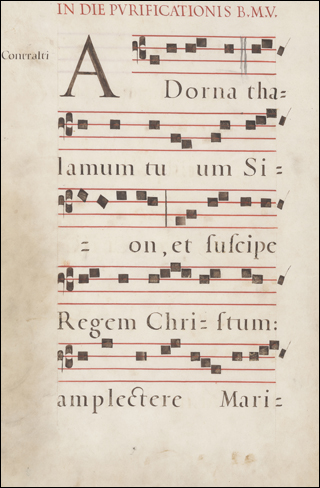 IN DIE PVRIFICATIONIS B.M.V.
Contralti
ADorna tha=
lamum tu um Si=
= on, et ſuſcipe
Regem Chri=ſtum:
amplectere Mari=